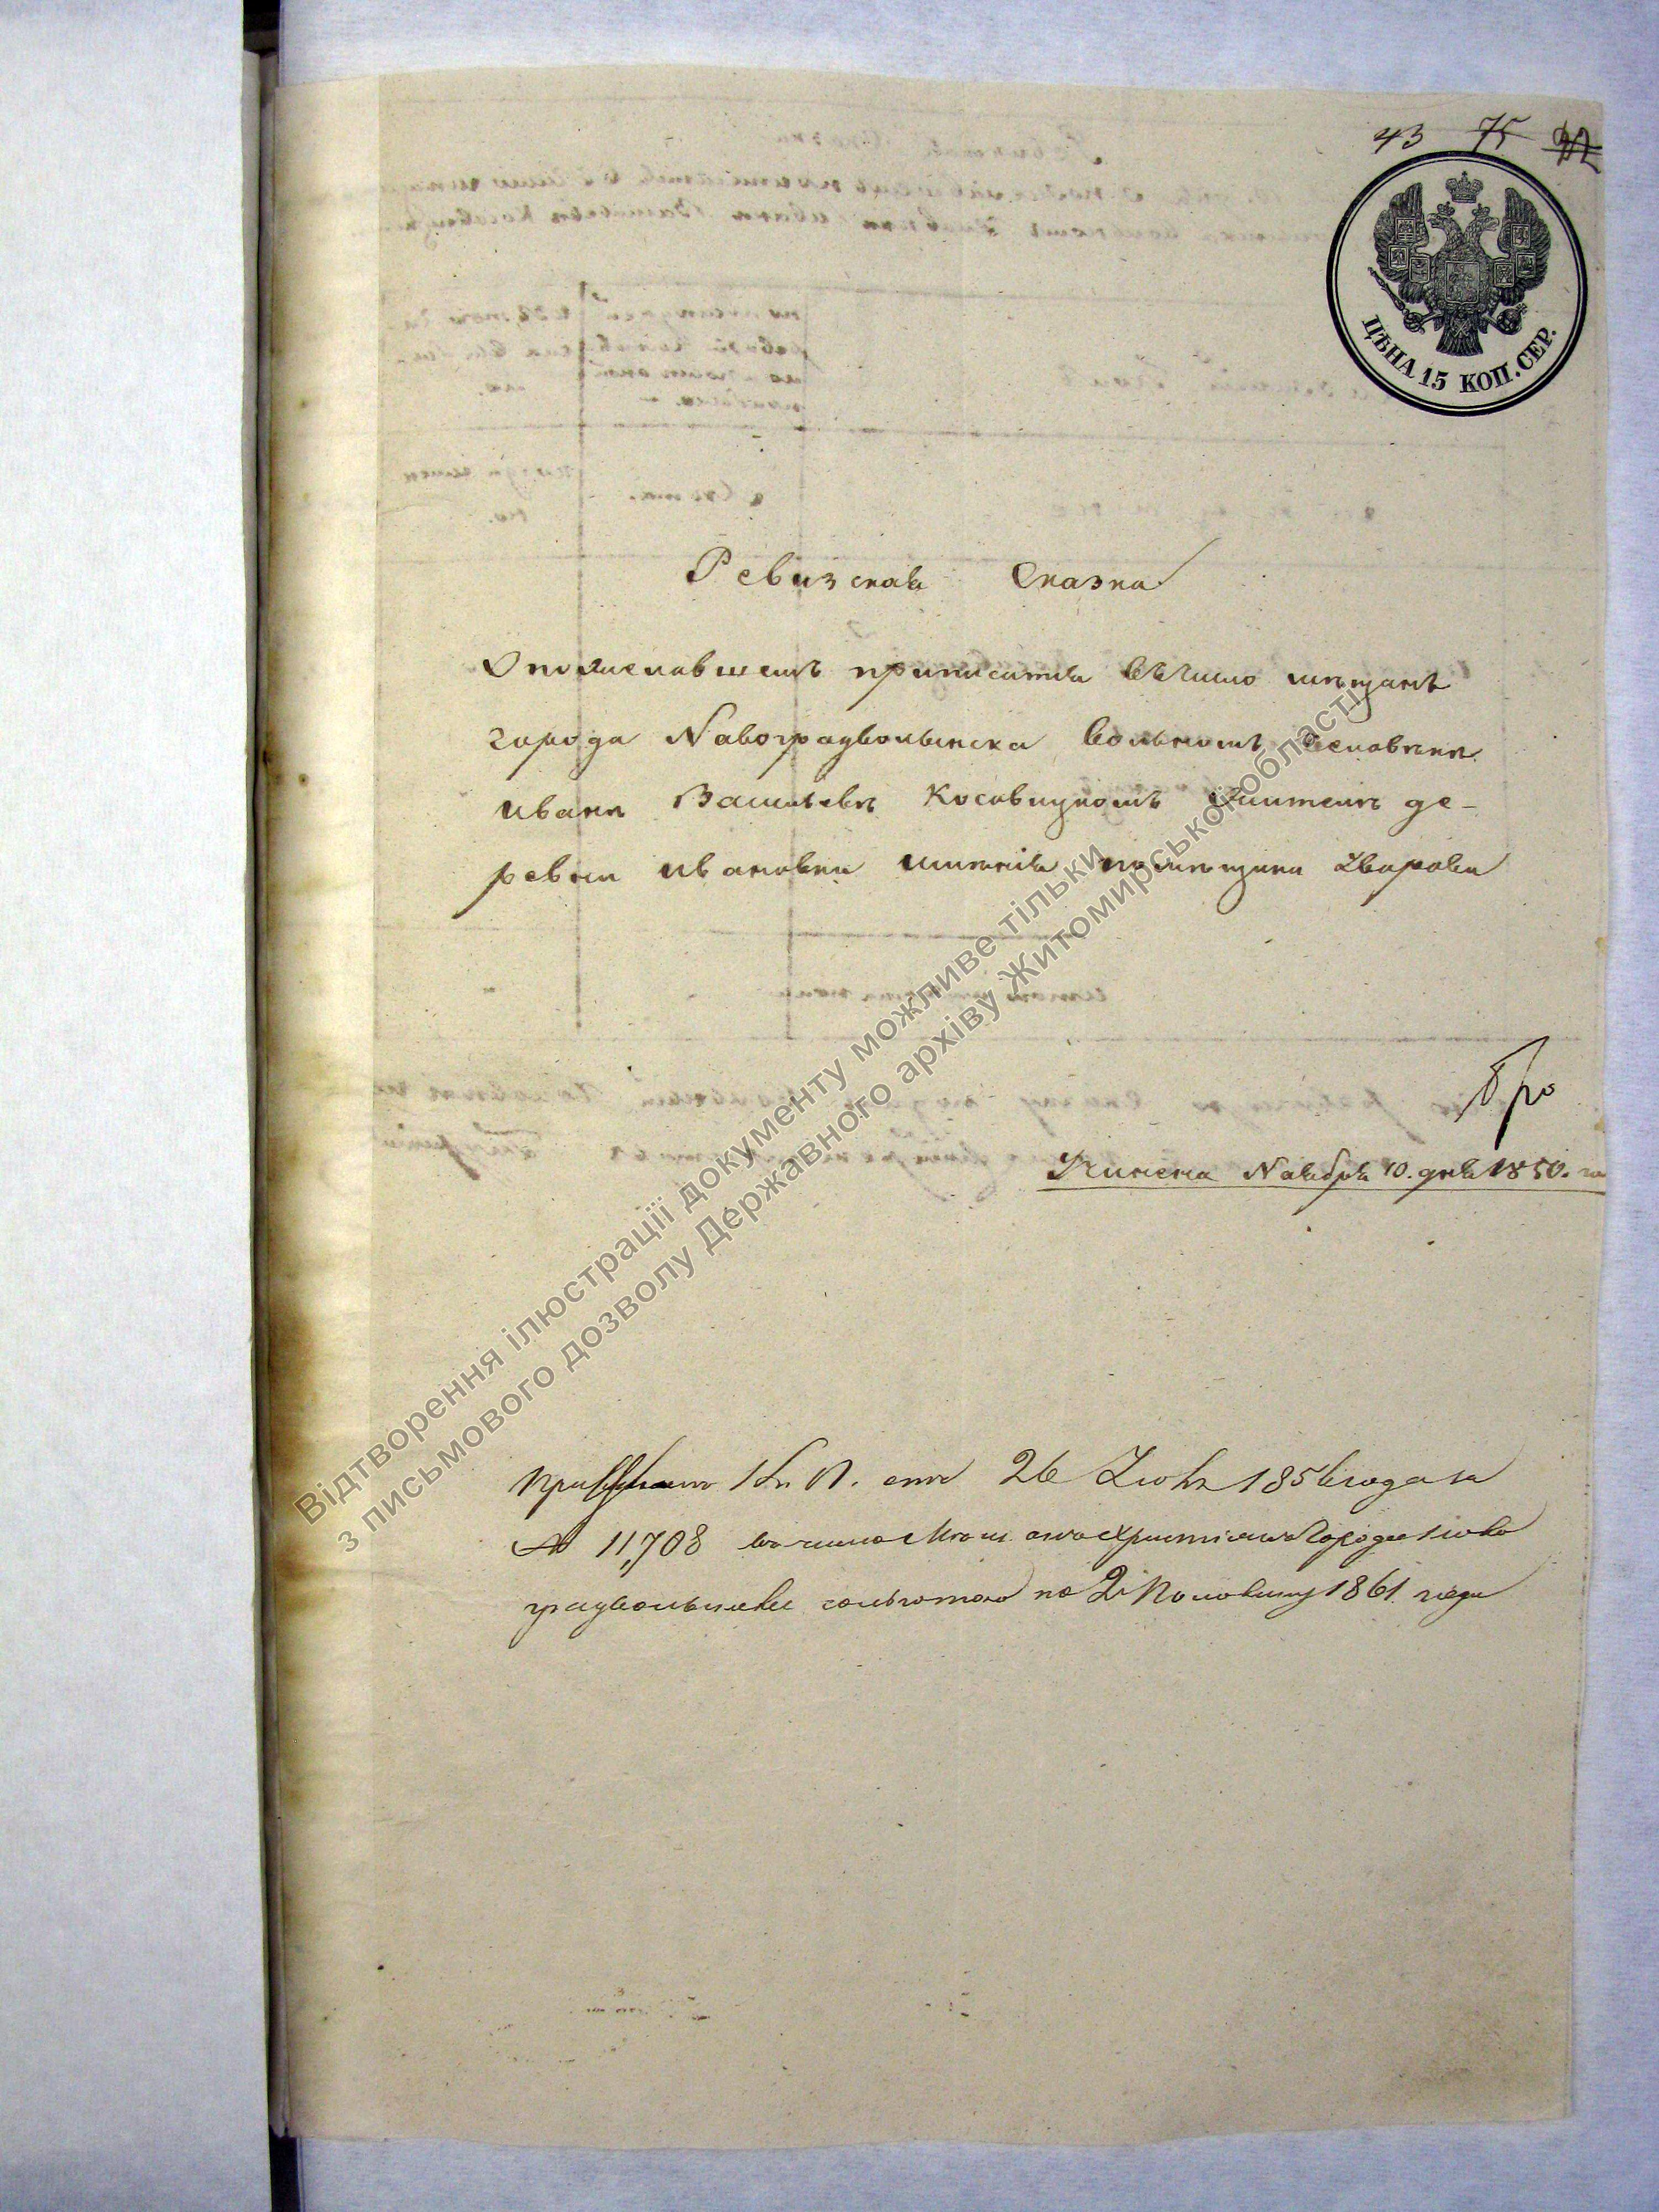 43 75
ЦѢНА 15 КОП. СЕР.
Ревизская Сказка
О пожелавшемъ приписатся въ число мѣщанъ
города Навоградволынска вольномъ человѣкѣ
Иванѣ Васильевѣ Косовицкомъ жителѣ де-
ревни Ивановки имѣнія помѣщика Уварова
Учинена Ноября 10. дня 1850. го
К. П. отъ 26 1856 года за
№ 11,708 въ число христіанъ города Ново
градволынска сальготою по 2ю Половину 1861 года
Відтворення ілюстрації документу можливе тільки
з письмового дозволу Державного архіву Житомирської області